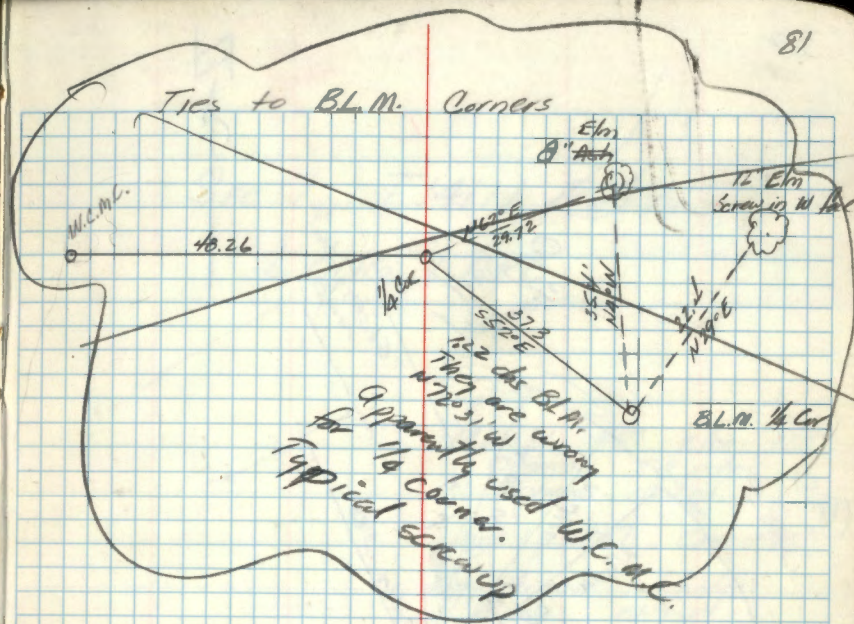 81
Ties to B.L.M. Corners
Elm
8" Ash
12" Elm
Screw in W
W.C.M.C.
48.26
N62°E
29.72
1/4 Cor
37.3
S52°E
N2°W
N29°E
B.L.M. 1/4 Cor
1.22 chs B.L.M.
They are wrong
N72°31'W
Apparently used W.C.M.C.
for 1/4 corner.
Typical screw up